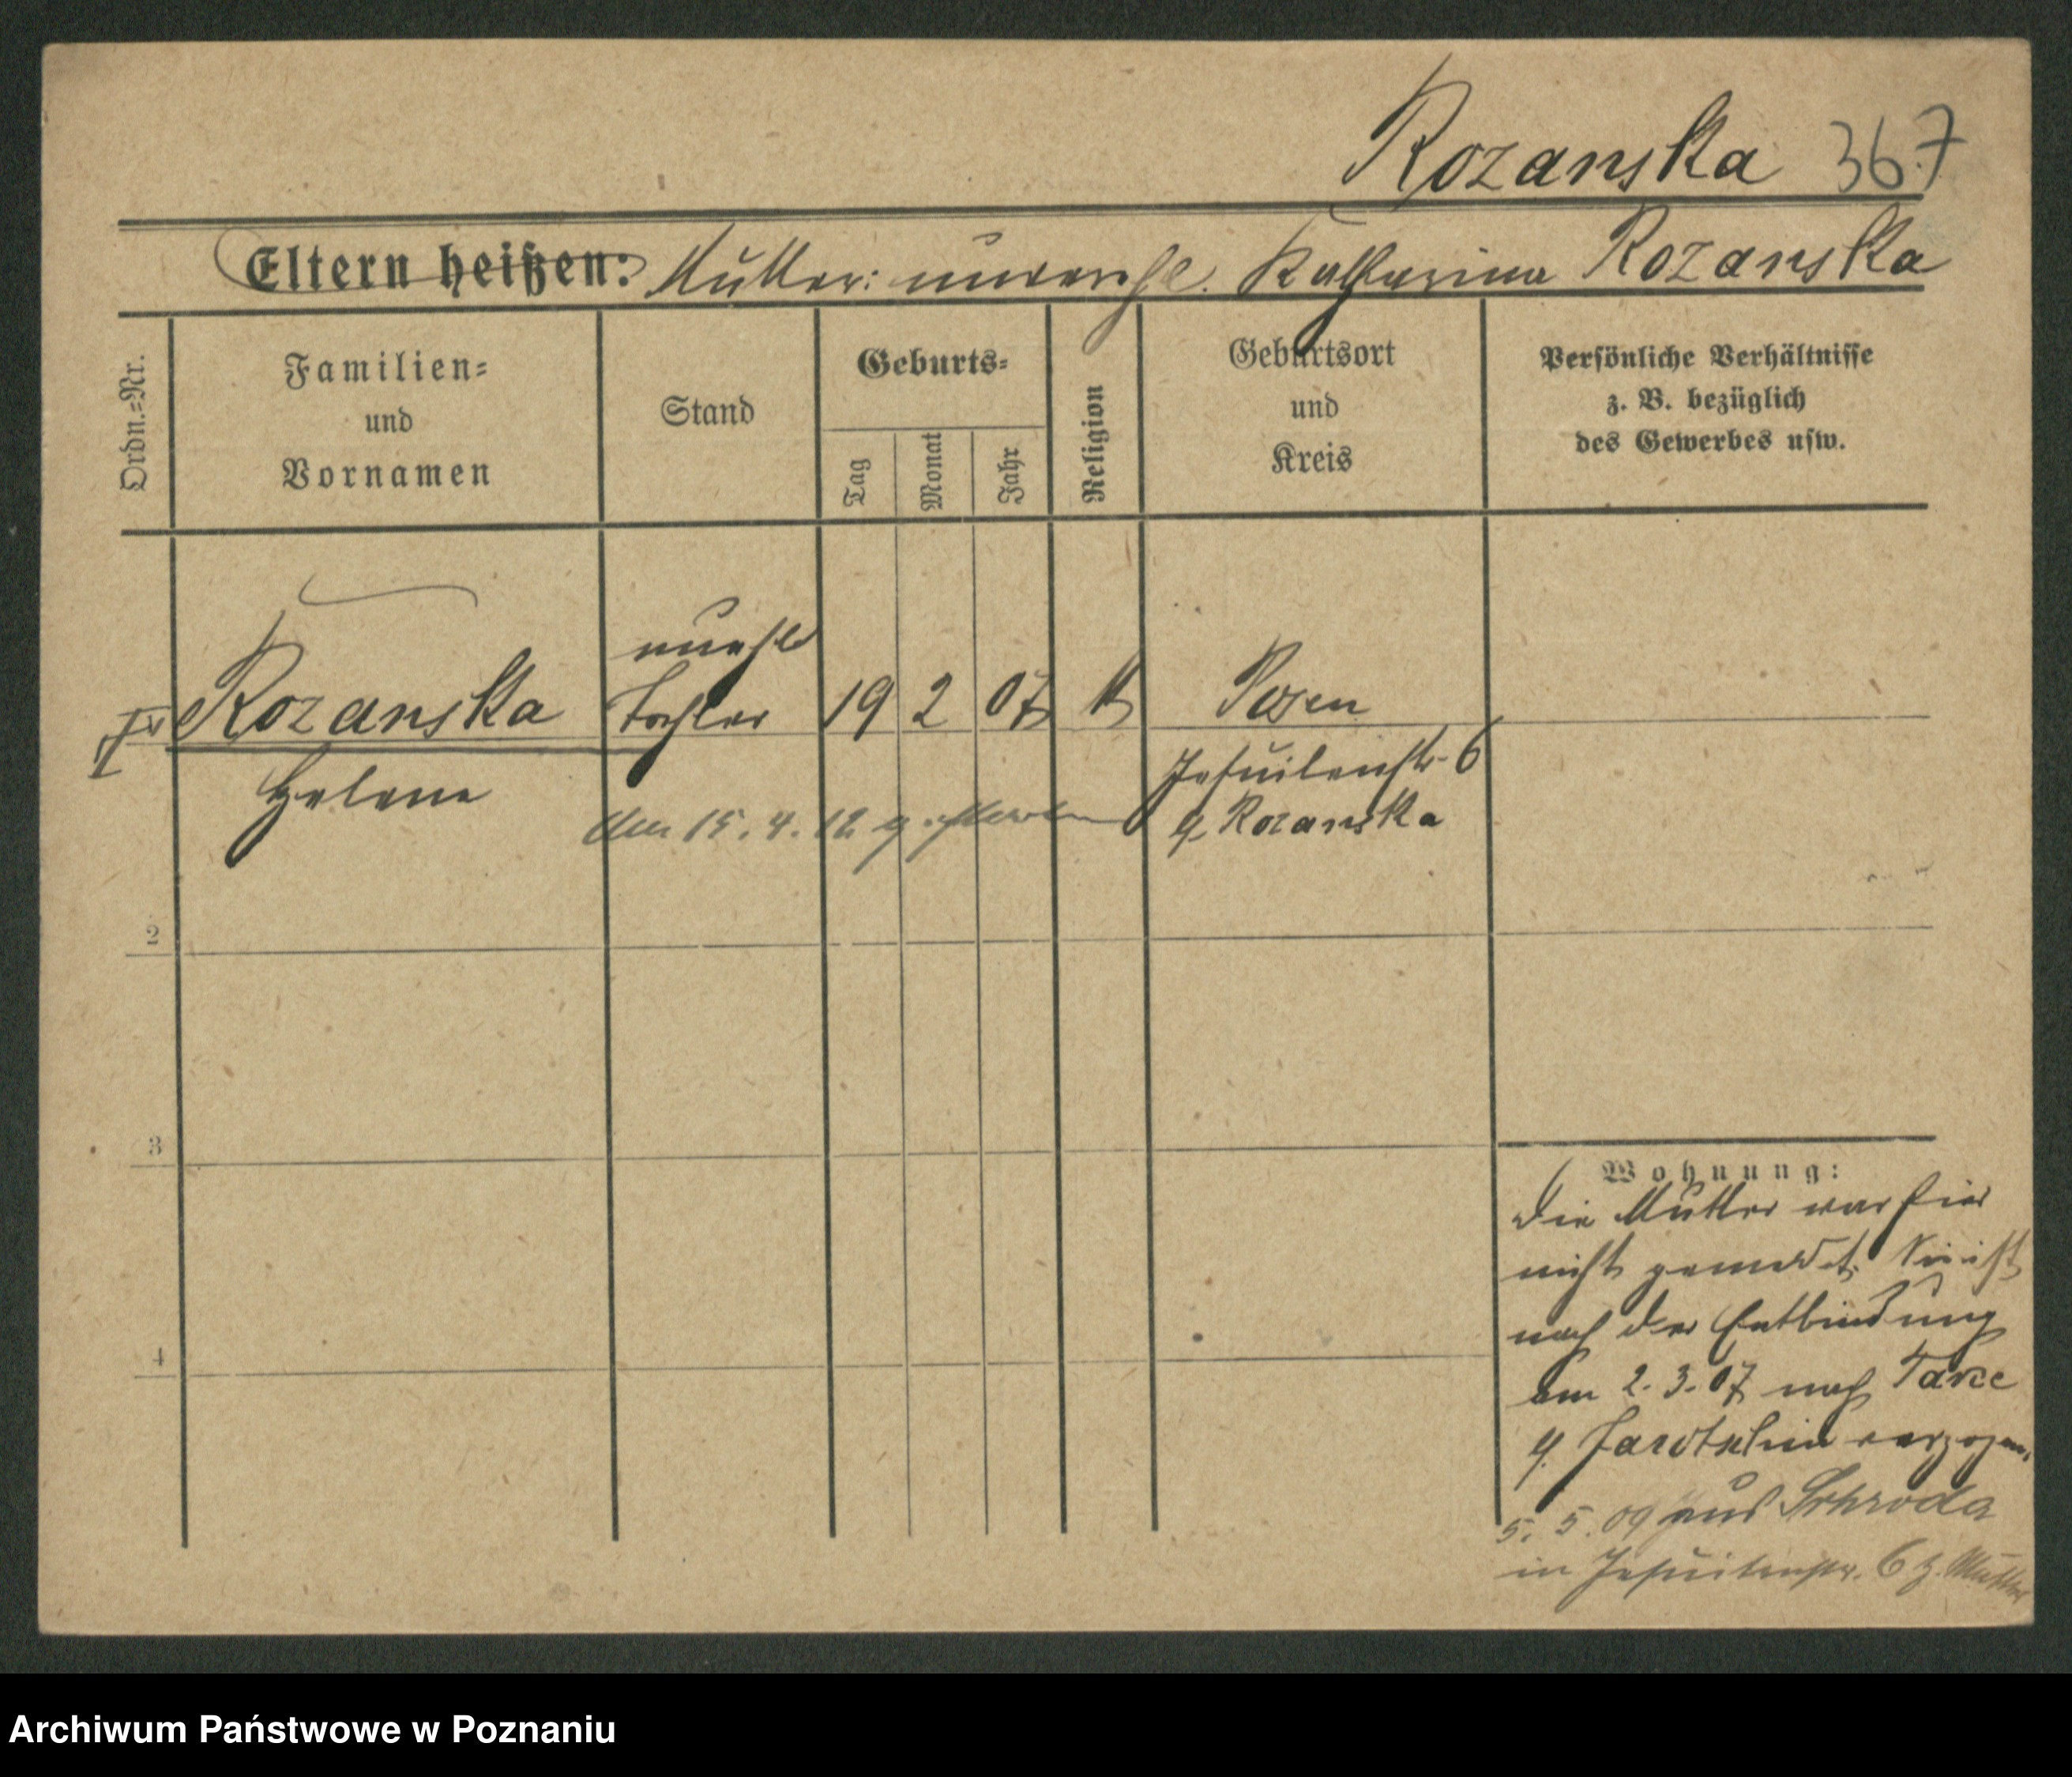 Rozanska 367
Eltern heißen: Mutter: unverehl. Katharina Rozanska
Ordn.=Nr.
Familien=
und
Vornamen
Stand
Geburts=
Tag
Monat
Jahr
Religion
Geburtsort
und
Kreis
Persönliche Verhältnisse
z. B. bezüglich
des Gewerbes usw.
unehl
Rozanska Tochter 19 2 07 K Posen
Helene
Jesuitenstr. 6
Am 15.4.12 gestorben
q. Rozanska
2
3
4
Wohnung:
Die Mutter war hier
nicht gemeldet. Sie ist
nach der Entbindung
am 2.3.07 nach Tarce
q. Jarotschin verzogen.
5. 5. 09 aus Schroda
in Jesuitenstr. 6 z. Mutter
Archiwum Państwowe w Poznaniu